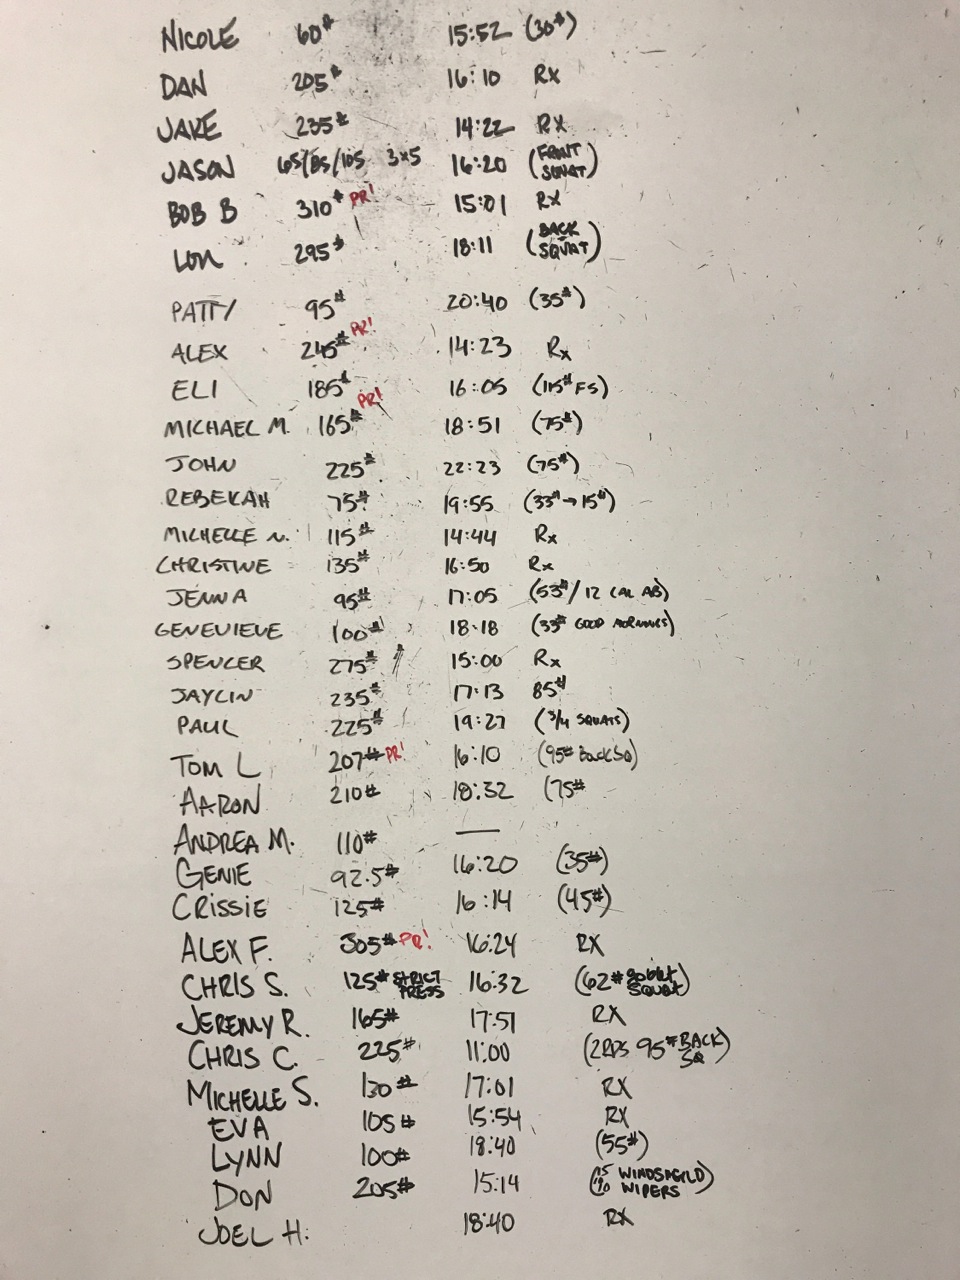 NICOLE 60# 15:52 (30#)
DAN 205# 16:10 Rx
JAKE 235# 14:22 RX
JASON 65/85/105 3x5 16:20 (FRONT SQUAT)
BOB B 310# PR! 15:01 RX
LON 295# 18:11 (BACK SQUAT)
PATTY 95# 20:40 (35#)
ALEX 245# PR! 14:23 Rx
ELI 185# 16:05 (115# FS)
MICHAEL M. 165# PR! 18:51 (75#)
JOHN 225# 22:23 (75#)
REBEKAH 75# 19:55 (33#→15#)
MICHELLE N. 115# 14:44 Rx
CHRISTINE 135# 16:50 Rx
JENNA 95# 17:05 (53#/12 CAL AB)
GENEVIEVE 100# 18:18 (33# GOOD MORNINGS)
SPENCER 275# 15:00 Rx
JAYLIN 235# 17:13 85#
PAUL 225# 19:27 (3/4 SQUATS)
TOM L 207# PR! 16:10 (95# Back SQ)
AARON 210# 18:32 (75#
ANDREA M. 110# —
GENIE 92.5# 16:20 (35#)
CRISSIE 125# 16:14 (45#)
ALEX F. 305# PR! 16:24 RX
CHRIS S. 125# STRICT PRESS 16:32 (62# goblet SQUAT)
JEREMY R. 165# 17:51 RX
CHRIS C. 225# 11:00 (2RDS 95# BACK SQ)
MICHELLE S. 130# 17:01 RX
EVA 105# 15:54 RX
LYNN 100# 18:40 (55#)
DON 205# 15:14 WIPERS)
JOEL H. 18:40 RX